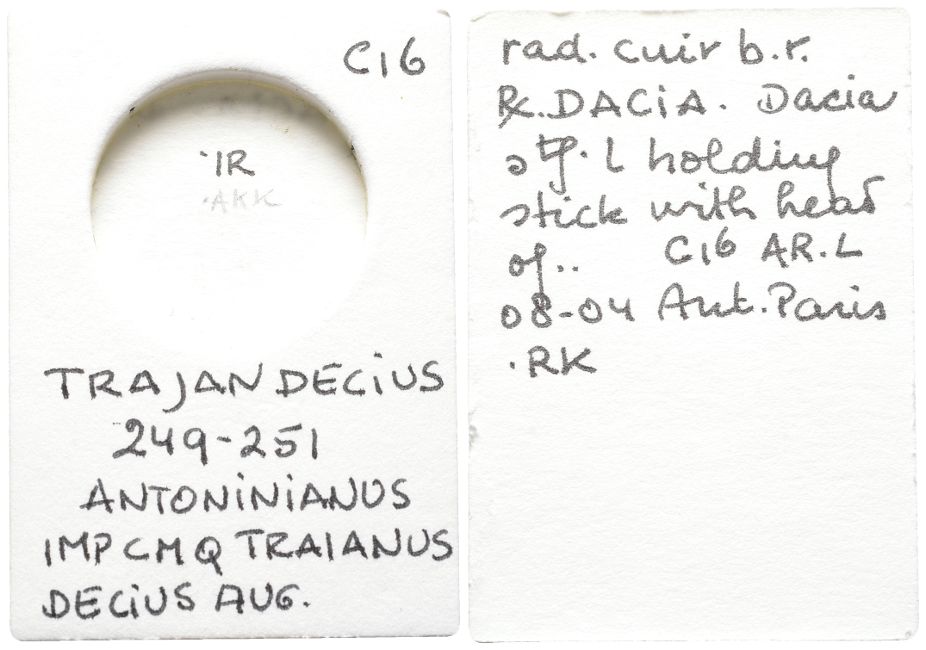 C16
·IR
·AKK
TRAJAN DECiUS
249-251
ANTONiNiANUS
IMP CMQ TRAIANUS
DECiUS AUG.
rad. cuir b.r.
Rx. DACiA. Dacia
stg. L holding
stick with head
of.. C16 AR.L
08-04 Ant. Paris
·RK